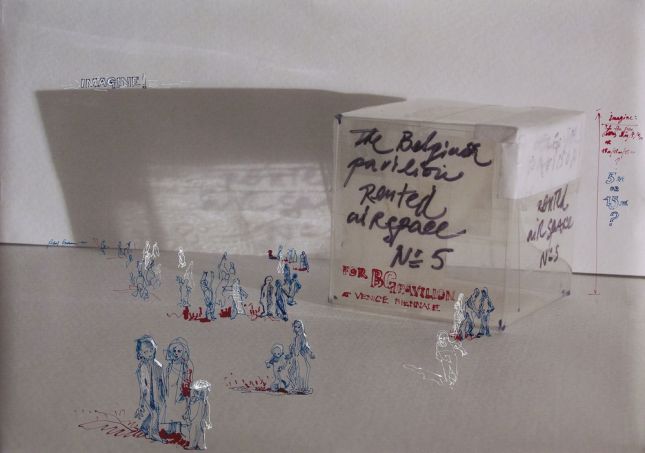 IMAGINE!
The Belgian
pavilion
Rented
airspace
№ 5
FOR BG PAVILION
VENICE BIENNALE
RENTED
AIRSPACE
№5
imagine:
5m
OR
15m
?